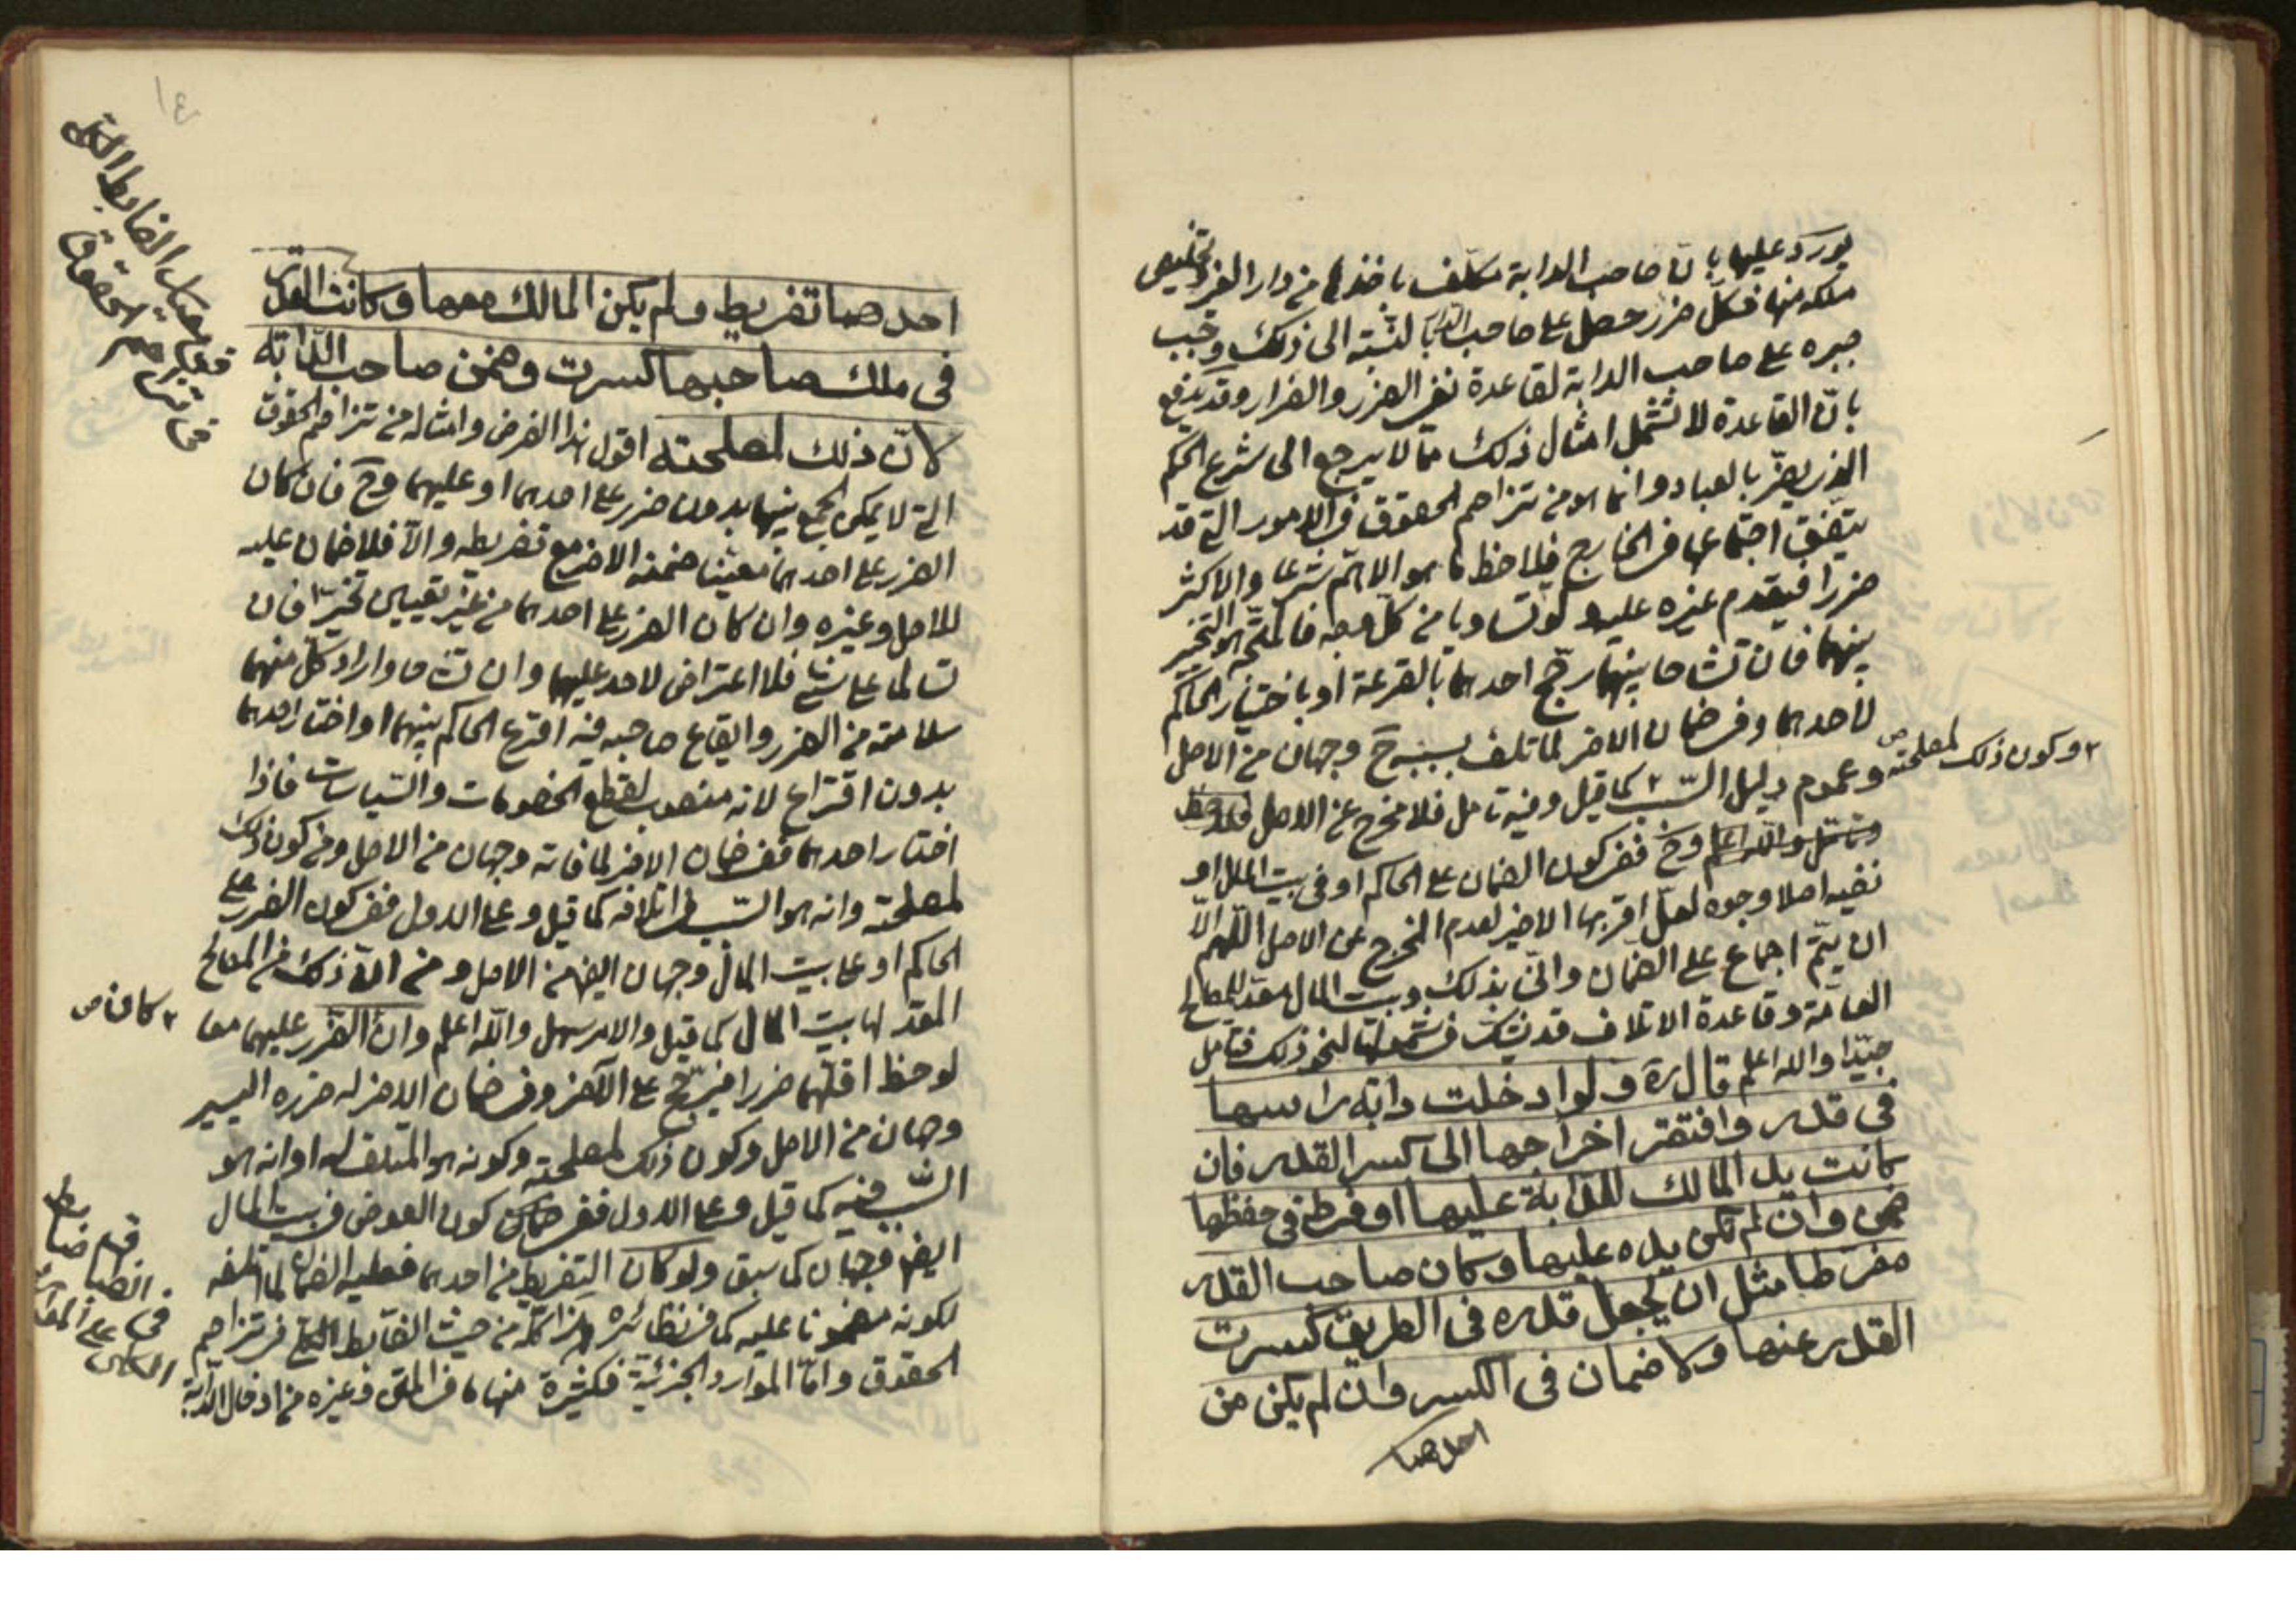 يورد عليها بان صاحب الدابة مكلف باخذها من دار الغير وتخليص
ملكه منها فكل ضرر حصل على صاحب الدار بالنسبة الى ذلك وجب
جبره على صاحب الدابة لقاعدة نفى الضرر والضرار وقد يدفع
بان القاعدة لا تشمل امثال ذلك مما لا يرجع الى شرع الحكم
الذى يضر بالعباد وانما هو من تزاحم الحقوق فى الامور التى قد
يتفق اجتماعها فى الخارج فيلاحظ ما هو الاهم شرعا والاكثر
ضررا فيقدم غيره عليه ولو تساويا من كل وجه فالمتجه هو التخيير
بينهما فان تشاحا بينهما رجح احدهما بالقرعة او باختيار الحاكم
لاحدهما وفى ضمان الاخر لما تلف بسببه ح وجهان من الاصل
وعموم دليل السبب ٢ كما قيل وفيه تامل فلا مخرج عن الاصل
٢ وكون ذلك لمصلحته ص
وتامل والله اعلم وح ففى كون الضمان على الحاكم او فى بيت المال او
نفيه اصلا وجوه لعل اقربها الاخير لعدم المخرج عن الاصل اللهم الا
ان يتم اجماع على الضمان وانى بذلك وبيت المال معد للمصالح
العامة وقاعدة الاتلاف قد يشك فى شمولها لنحو ذلك فتامل
جيدا والله اعلم قال ره ولو ادخلت دابة راسها
فى قدر وافتقر اخراجها الى كسر القدر فان
كانت يد المالك للدابة عليها او فرط فى حفظها
ضمن وان لم تكن يده عليها وكان صاحب القدر
مفرطا مثل ان يجعل قدره فى الطريق كسرت
القدر عنها ولا ضمان فى الكسر وان لم يكن من
احدهما
١٤
فى تزاحم الحقوق
احدهما تفريط ولم يكن المالك معها وكانت القدر
فى ملك صاحبها كسرت وضمن صاحب الدابة
لان ذلك لمصلحته اقول هذا الفرض وامثاله من تزاحم الحقوق
التى لا يمكن الجمع بينها بدون ضرر على احدهما او عليهما وح فان كان
الضرر على احدهما معينا ضمنه الاخر مع تفريطه والا فلا ضمان عليه
للاصل وغيره وان كان الضرر على احدهما من غير تعيين تخيرا فان
تسالما على شئ فلا اعتراض لاحد عليهما وان تشاحا واراد كل منهما
سلامته من الضرر وايقاع صاحبه فيه اقترع الحاكم بينهما او اختار احدهما
بدون اقتراع لانه منصوب لقطع الخصومات والسياسات فاذا
اختار احدهما ففى ضمان الاخر لما فاته وجهان من الاصل ومن كون ذلك
لمصلحته وانه هو السبب فى اتلافه كما قيل وعلى الاول ففى كون الضرر على
الحاكم او على بيت المال وجهان ايضا من الاصل ومن ان ذلك من المصالح
المعد لها بيت المال كما قيل والامر سهل والله اعلم وان ٢ الضرر عليهما معا
٢ كان ص
لوحظ اقلهما ضررا فيرجح على الاخر وفى ضمان الاخر له ضرره اليسير
وجهان من الاصل وكون ذلك لمصلحته وكونه هو المتلف له او انه هو
السبب فيه كما قيل وعلى الاول ففى كون العوض فى بيت المال
ايضا وجهان كما سبق ولو كان التفريط من احدهما فعليه الضمان لما اتلفه
لكونه مضمونا عليه كما فى نظائره هذا كله من حيث الضابط الكلى فى تزاحم
الحقوق واما الموارد الجزئية فكثيرة منها ما فى المتن وغيره من ادخال الدابة